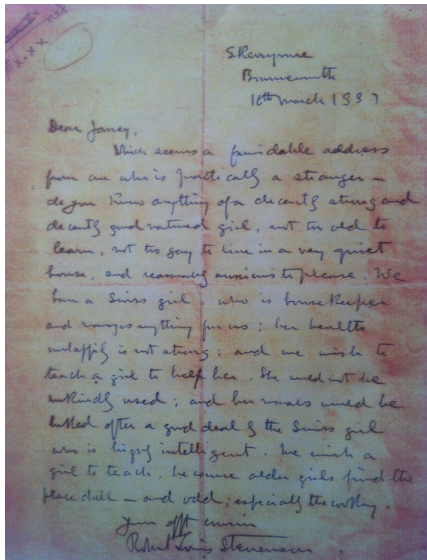 Skerryvore
Bournemouth
16th March 1887
Dear Janey,
Which seems a formidable address
from one who is practically a stranger —
do you know anything of a decently strong and
decently good natured girl, not too old to
learn, not too gay to live in a very quiet
house, and reasonably anxious to please. We
have a Swiss girl, who is housekeeper
and manages anything for us; her health
unhappily is not strong; and we wish to
teach a girl to help her. She would not be
unkindly used; and her morals would be
looked after a good deal by the Swiss girl
who is highly intelligent. We wish a
girl to teach, because older girls find the
place dull — and odd; especially the
Your afft cousin
Robert Louis Stevenson